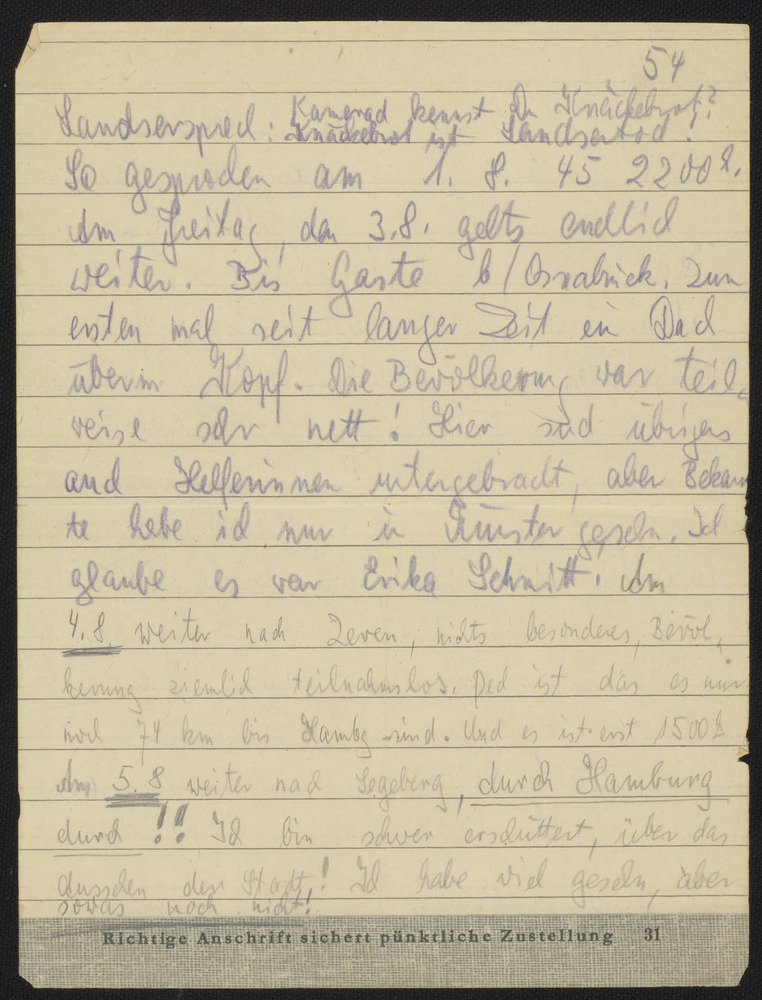 54
Landserspred: Kamerad kennst Du Knäckebrot?
Knäckebrot ist Landsertod!
So gesproden am 1. 8. 45 2200 h.
Am Freitag, den 3.8. gehts endlid
weiter. Bis Gaste b/Osnabrück. Zum
ersten mal seit langer Zeit ein Dad
überm Kopf. Die Bevölkerung war teil-
weise sehr nett! Hier sind übrigens
aud Helferinnen untergebradt, aber Bekann
te habe id nur in Münster gesehn. Id
glaube es war Erika Schmitt. Am
4.8. weiter nach Zeven, nichts besonderes, Bevöl,
kerung ziemlid teilnahmslos. Ped ist das es nur
nod 74 km bis Hambg sind. Und es ist erst 1500 h
Am 5.8 weiter nad Segeberg, durch Hamburg
durd !! Id bin schwer erschüttert, über das
Aussehen der Stadt! Id habe viel gesehn, aber
sowas noch nicht!
Richtige Anschrift sichert pünktliche Zustellung 31